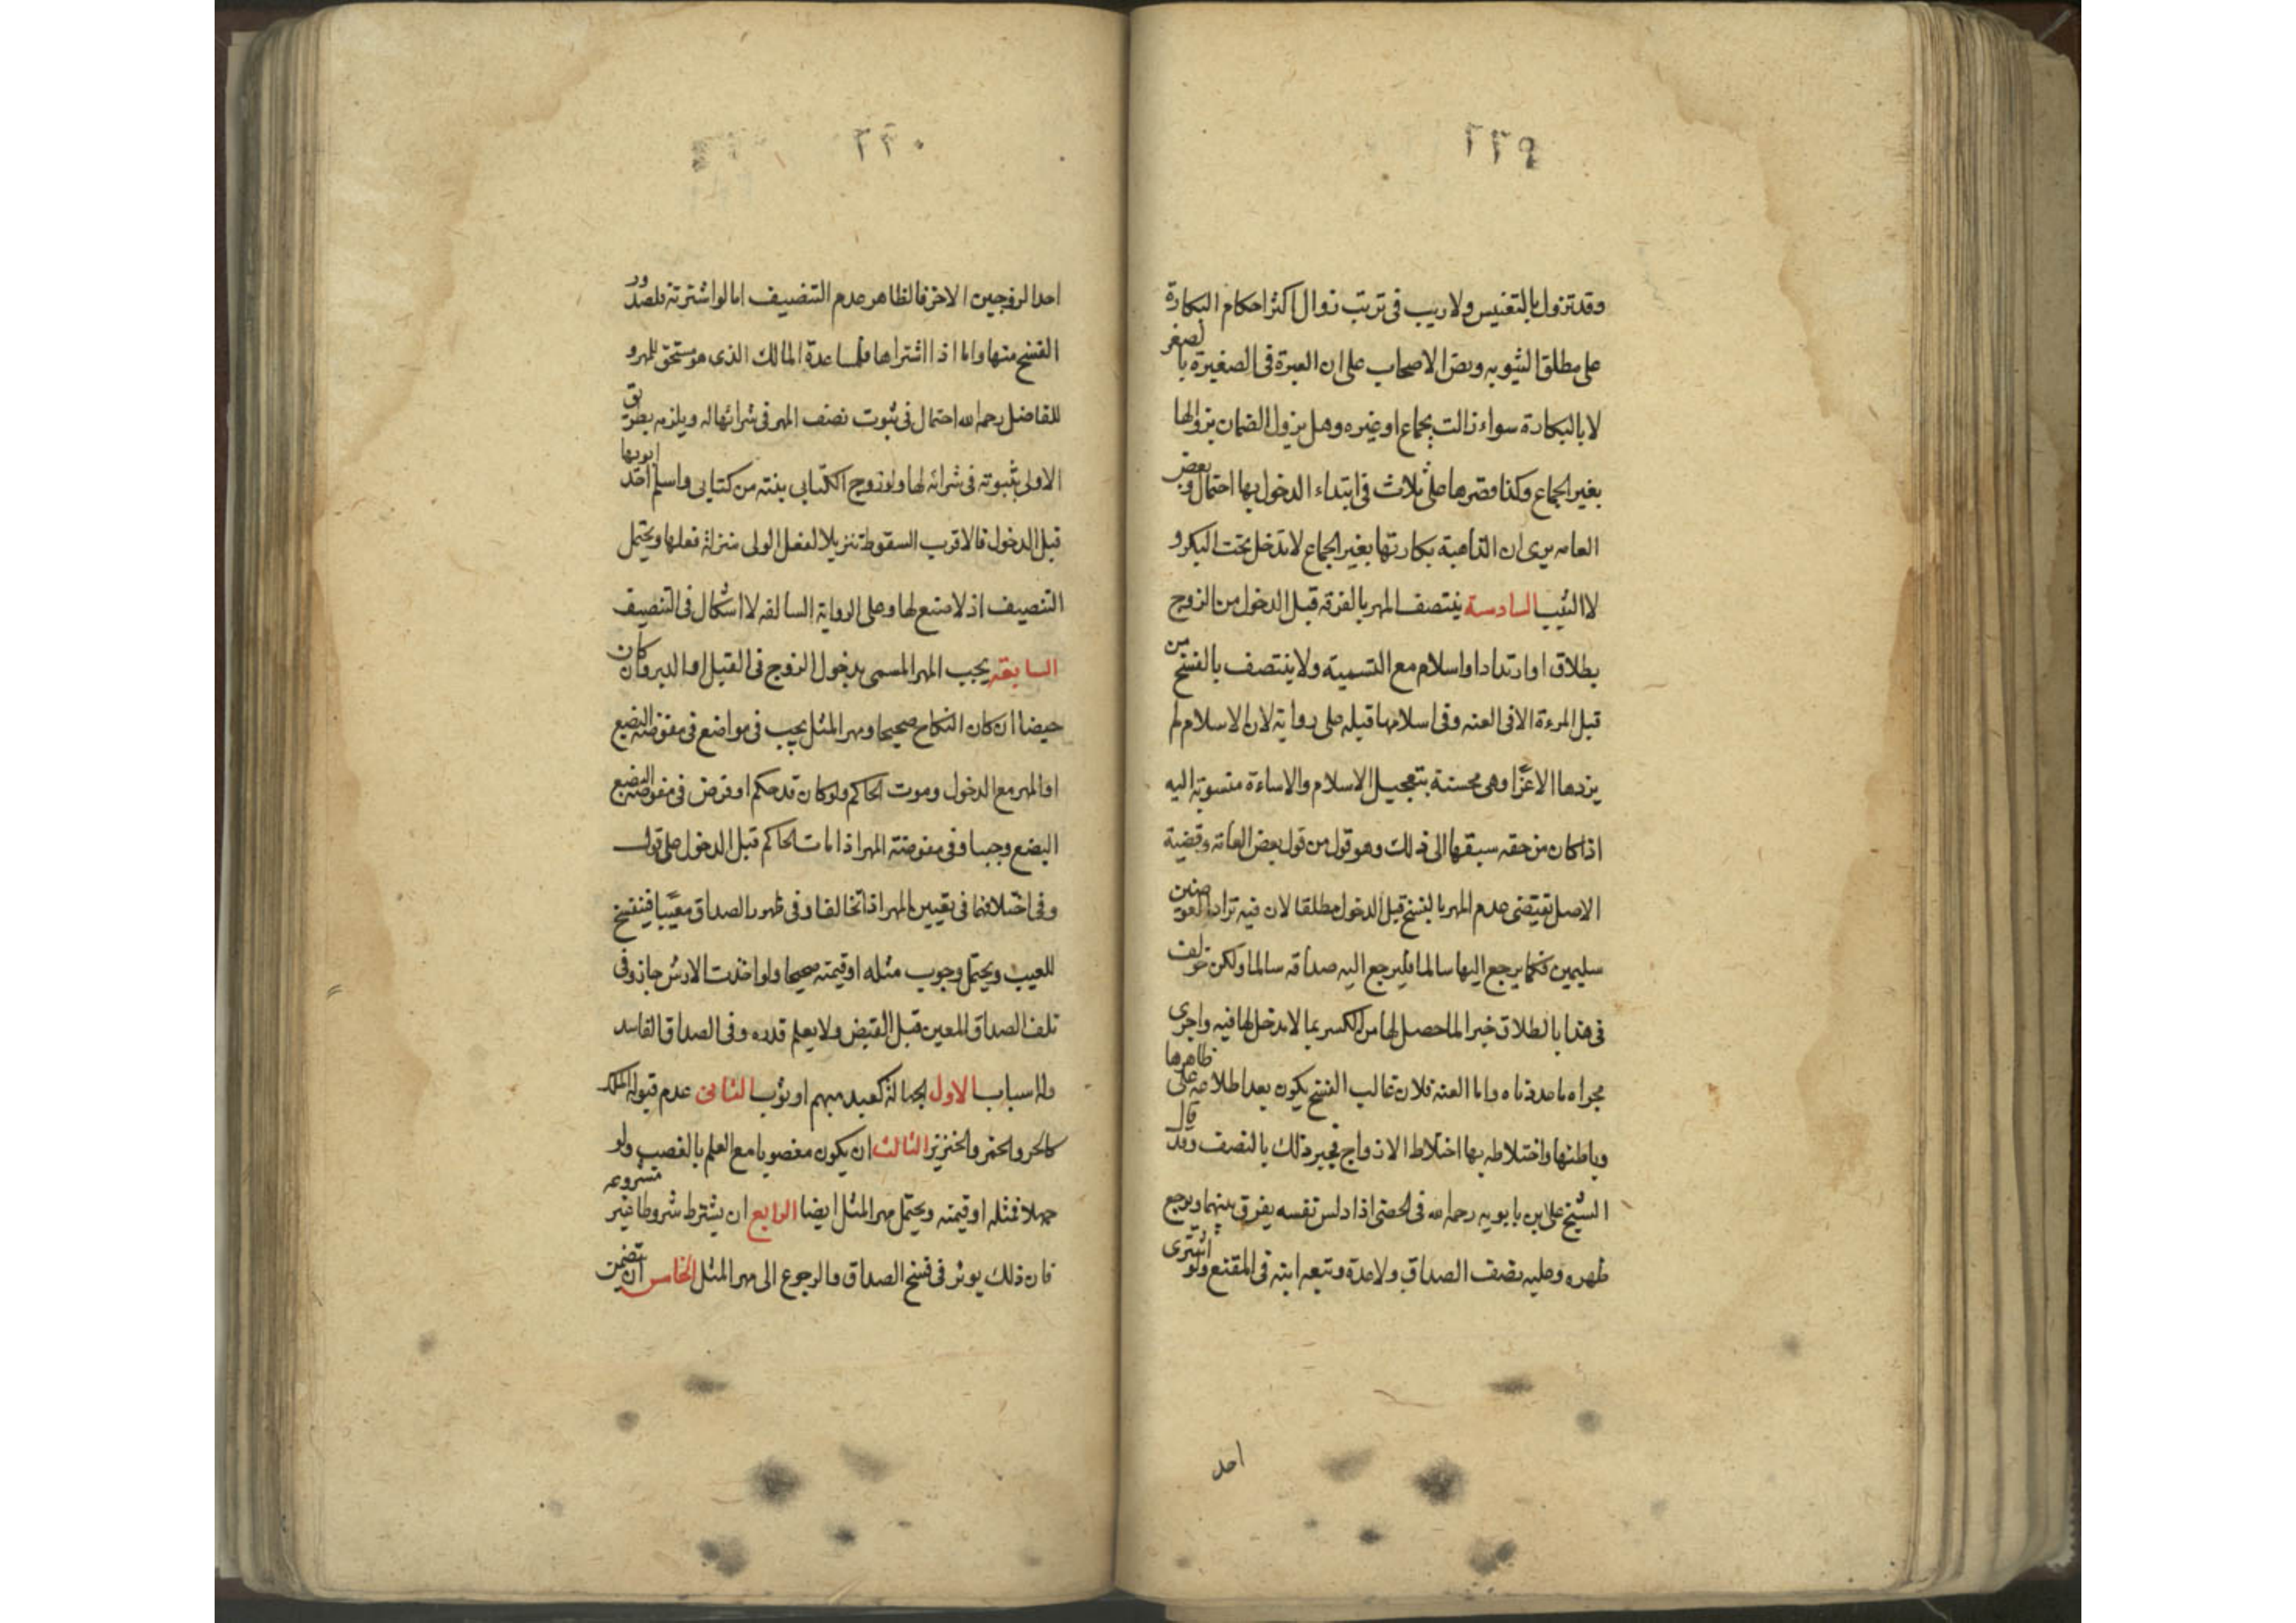 ٢٢٩
وقد تزول بالتعنيس ولا ريب فى ترتب زوال اكثر احكام البكارة
على مطلق الثيوبه ونص الاصحاب على ان العبرة فى الصغيرة بالصغر
لا بالبكارة سواء زالت بجماع او غيره وهل يزول الضمان بزوالها
بغير الجماع وكذا قصرها على ثلاث فى ابتداء الدخول بها احتمال وبعض
العامه يرى ان الذاهبة بكارتها بغير الجماع لا تدخل تحت البكر و
لا الثيب السادسة ينتصف المهر بالفرقه قبل الدخول من الزوج
بطلاق او ارتداد او اسلام مع التسمية ولا ينتصف بالفسخ من
قبل المرءة الا فى العنه وفى اسلامها قبله على رواية لان الاسلام لم
يزدها الا عزّا وهى محسنة بتعجيل الاسلام والاساءة منسوبة اليه
اذا كان من حقه سبقها الى ذلك وهو قول من قول بعض العامة وقضية
الاصل تقتضى عدم المهر بالفسخ قبل الدخول مطلقا لان فيه تراد العوضين
سليمين فكما يرجع اليها سالما فليرجع اليه صداقه سالما ولكن خولف
فى هذا بالطلاق خبرا لما حصل لها من الكسر بما لا مدخل لها فيه واجرى
مجراه ما عددناه واما العنه فلان غالب الفسخ يكون بعد اطلاعه على ظاهرها
وباطنها واختلاطه بها اختلاط الازواج فجبر ذلك بالنصف وقد قال
الشيخ على بن بابويه رحمه الله فى الخصى اذا دلس نفسه يفرق بينهما ويوجع
ظهره وعليه نصف الصداق ولا عدة وتبعه ابنه فى المقنع ولو اشترى
احد
٢٢٠
احد الزوجين الاخر فالظاهر عدم التنصيف اما لو اشترته فلصدور
الفسخ منها واما اذا اشتراها فلمساعدة المالك الذى هو مستحق للمهر و
للفاضل رحمه الله احتمال فى ثبوت نصف المهر فى شرائها له ويلزمه بطريق
الاولى ثبوته فى شرائه لها ولو زوج الكتابى بنته من كتابى واسلم احد ابويها
قبل الدخول فالاقرب السقوط تنزيلا لفعل الولى منزلة فعلها ويحتمل
التنصيف اذ لا صنع لها وعلى الرواية السالفه لا اشكال فى التنصيف
السابعة يجب المهر المسمى بدخول الزوج فى القبل او الدبر وكان
حيضا ان كان النكاح صحيحا ومهر المثل يجب فى مواضع فى مفوضة البضع
او المهر مع الدخول وموت الحاكم ولو كان قد حكم او فرض فى مفوضة البضع
البضع وجبا وفى مفوضة المهر اذا مات الحاكم قبل الدخول على قول
وفى اختلافهما فى تعيين المهر اذا تخالفا وفى ظهور الصداق معيّبا فينفسخ
للعيب ويحتمل وجوب مثله او قيمته صحيحا ولو اخذت الارش جاز وفى
تلف الصداق المعين قبل القبض ولا يعلم قدره وفى الصداق الفاسد
وله اسباب الاول الجهالة كعبد مبهم او ثوب الثانى عدم قبوله الملك
كالحر والخمر والخنزير الثالث ان يكون مغصوبا مع العلم بالغصب ولو
جهلا فمثله او قيمته ويحتمل مهر المثل ايضا الرابع ان يشترط شروطا غير مشروعه
فان ذلك يوثر فى فسخ الصداق والرجوع الى مهر المثل الخامس ان تتضمن